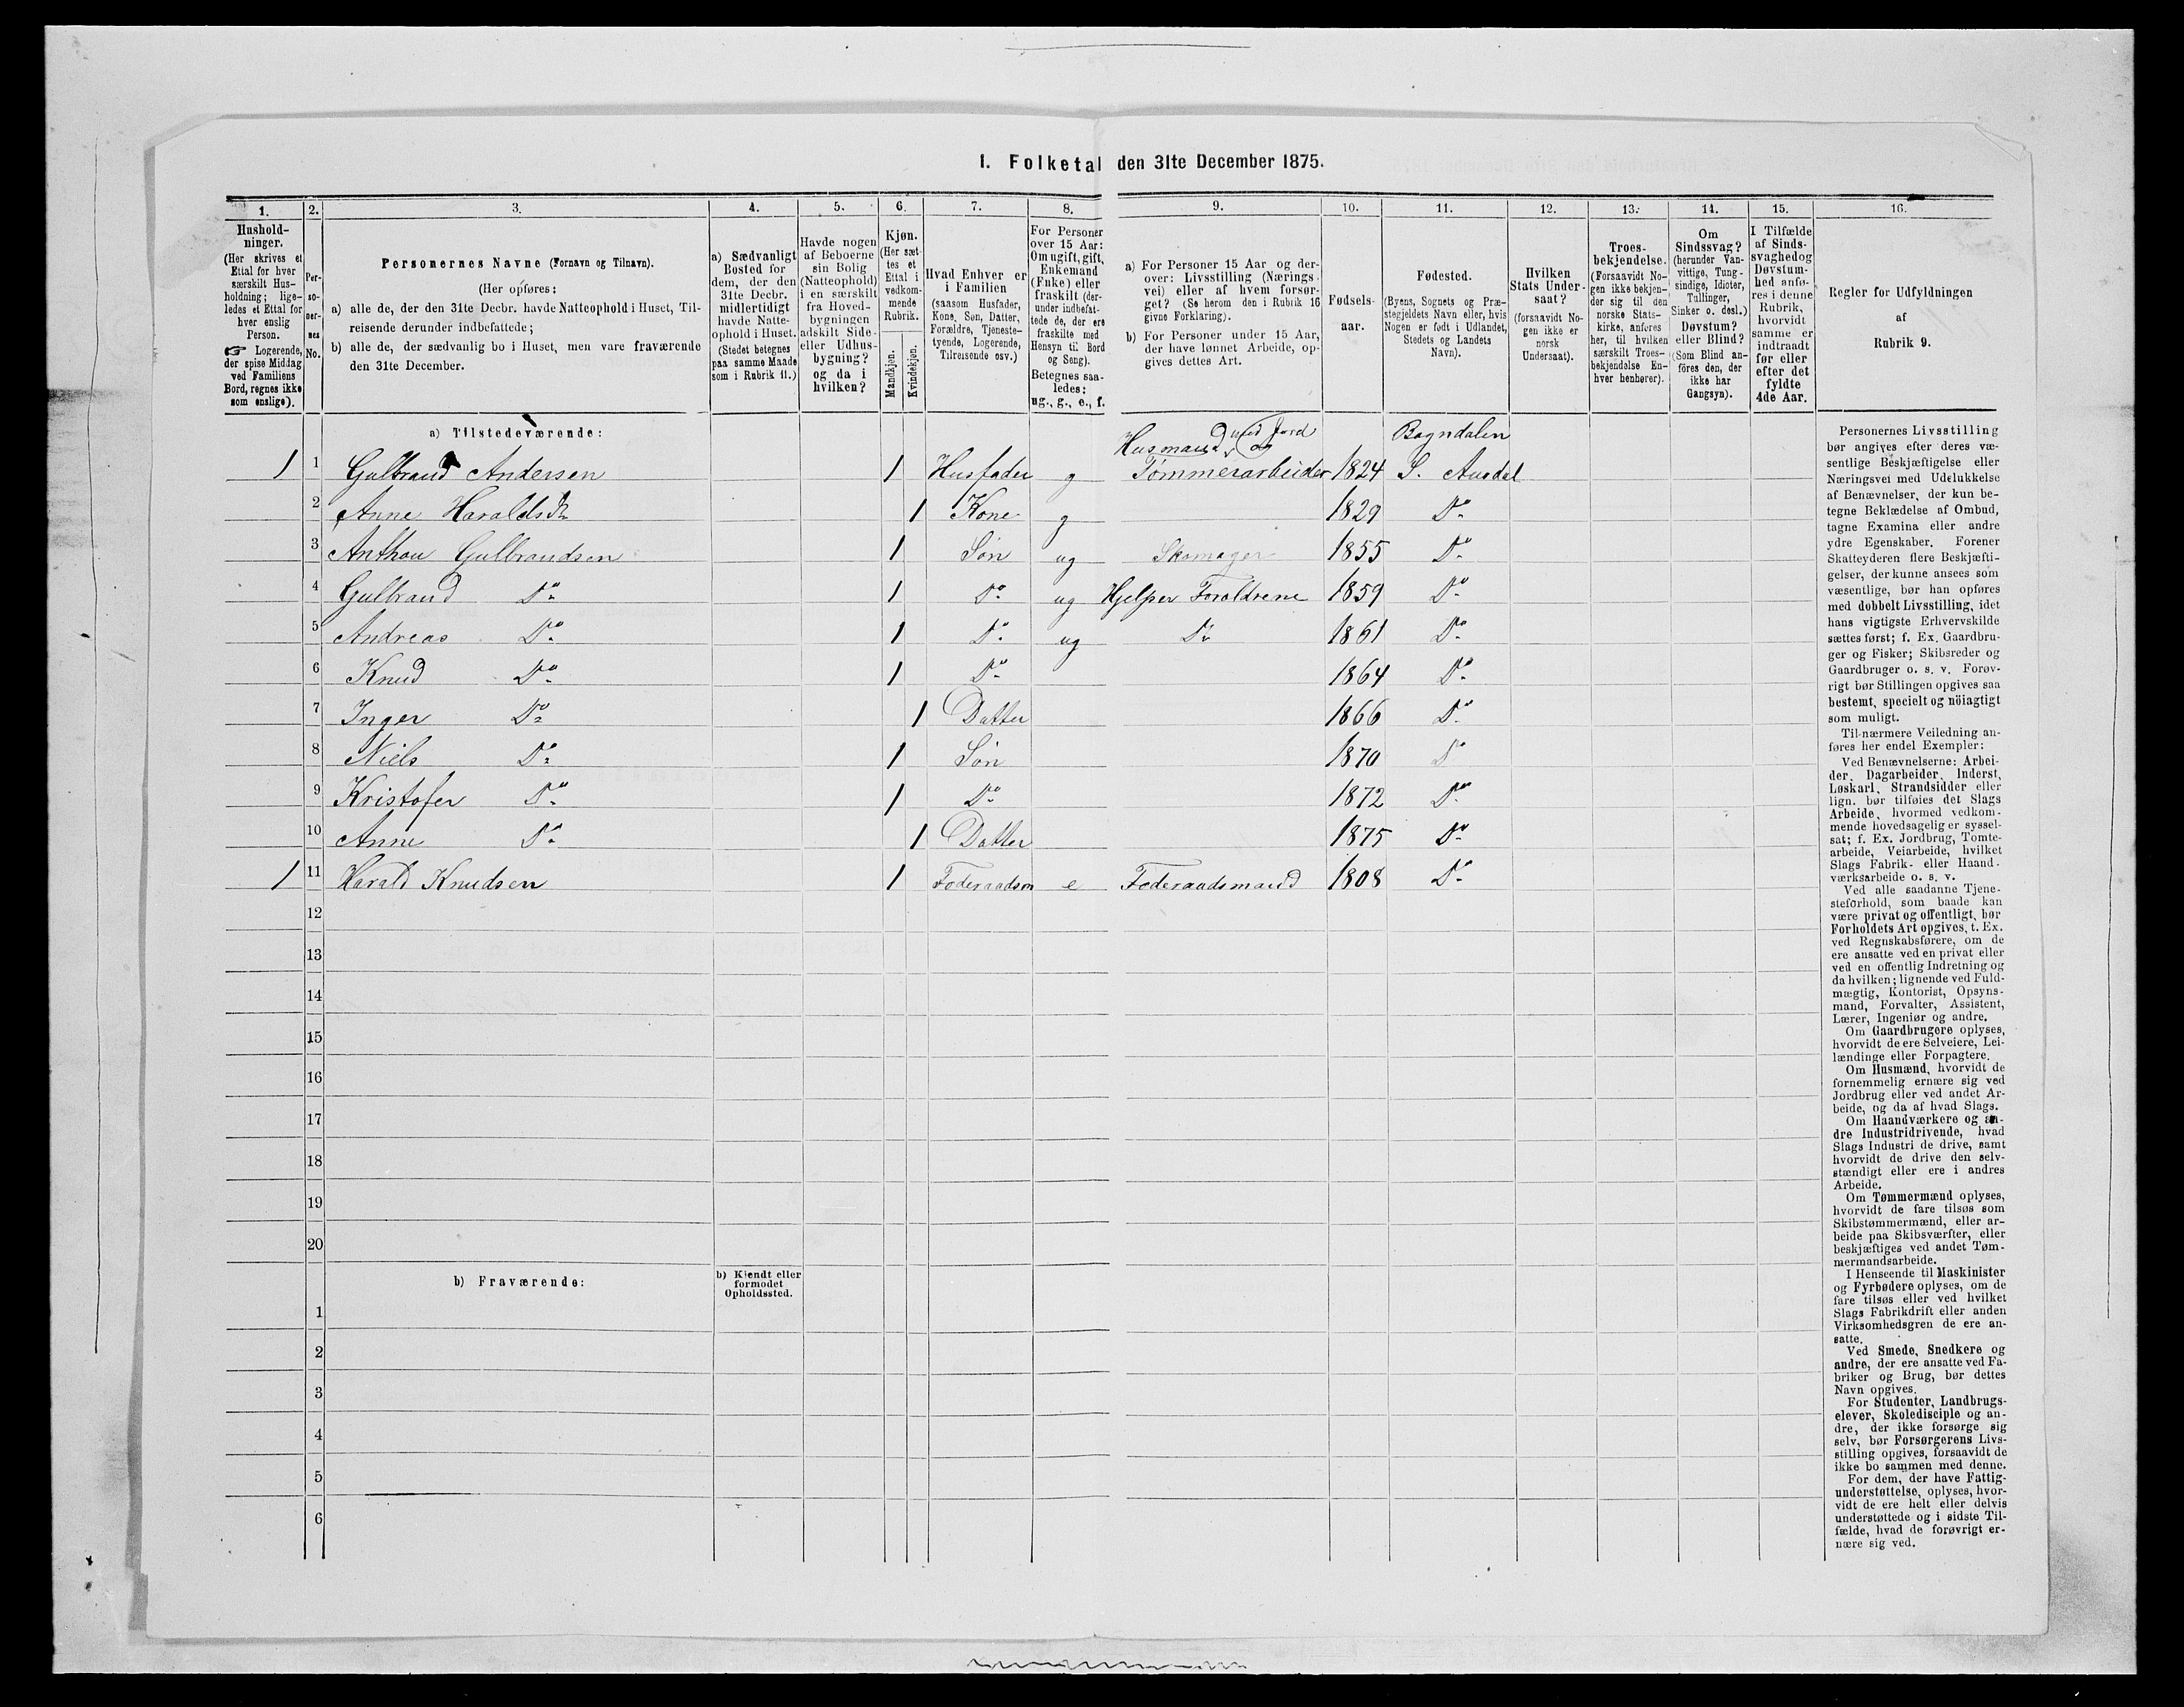 1. Folketal den 31te December 1875.
1. 2. 3. 4. 5. 6. 7. 8. 9. 10. 11. 12. 13. 14. 15. 16.
Hushold-
ninger.
(Her skrives et
Ettal for hver
særskilt Hus-
holdning; lige-
ledes et Ettal for
hver enslig
Person.
☞ Logerende,
der spise Middag
ved Familiens
Bord, regnes ikke
som enslige).
Per-
so-
ner-
nes
No.
Personernes Navne (Fornavn og Tilnavn).
(Her opføres:
a) alle de, der den 31te Decbr. havde Natteophold i Huset, Til-
reisende derunder indbefattede;
b) alle de, der sædvanlig bo i Huset, men vare fraværende
den 31te December.
a) Sædvanligt
Bosted for
dem, der den
31te Decbr.
midlertidigt
havde Natte-
ophold i Huset.
(Stedet betegnes
paa samme Maade
som i Rubrik 11.)
Havde nogen
af Beboerne
sin Bolig
(Natteophold)
i en særskilt
fra Hoved-
bygningen
adskilt Side-
eller Udhus-
bygning?
og da i
hvilken?
Kjøn.
(Her sæt-
tes et
Ettal i
vedkom-
mende
Rubrik.
Mandkjøn.
Kvindekjøn.
Hvad Enhver er
i Familien
(saasom Husfader,
Kone, Søn, Datter,
Forældre, Tjeneste-
tyende, Logerende,
Tilreisende osv.)
For Personer
over 15 Aar:
Om ugift, gift,
Enkemand
(Enke) eller
fraskilt (der-
under indbefat-
tede de, der ere
fraskilte med
Hensyn til Bord
og Seng).
Betegnes saa-
ledes:
ug., g., e., f.
a) For Personer 15 Aar og der-
over: Livsstilling (Nærings-
vei) eller af hvem forsør-
get? (Se herom den i Rubrik 16
givne Forklaring).
b) For Personer under 15 Aar,
der have lønnet Arbeide, op-
gives dettes Art.
Fødsels-
aar.
Fødested.
(Byens, Sognets og Præ-
stegjeldets Navn eller, hvis
Nogen er født i Udlandet,
Stedets og Landets
Navn).
Hvilken
Stats Under-
saat?
(forsaavidt No-
gen ikke er
norsk
Undersaat).
Troes-
bekjendelse.
(Forsaavidt No-
gen ikke bekjen-
der sig til den
norske Stats-
kirke, anføres
her, til hvilken
særskilt Troes-
bekjendelse En-
hver henhører).
Om
Sindssvag?
(herunder Van-
vittige, Tung-
sindige, Idioter,
Tullinger,
Sinker o. desl.)
Døvstum?
eller Blind?
(Som Blind an-
føres den, der
ikke har
Gangsyn).
I Tilfælde
af Sinds-
svaghed og
Døvstum-
hed anfø-
res i denne
Rubrik,
hvorvidt
samme er
indtraadt
før eller
efter det
fyldte
4de Aar.
Regler for Udfyldningen
af
Rubrik 9.
a) Tilstedeværende:
Husmand med Jord og Bagndalen
1 1 Gulbrand Andersen 1 Husfader g Tømmerarbeider 1824 S. Aurdal
2 Anne Haraldsd. 1 Kone g 1829 Do
3 Anthon Gulbrandsen 1 Søn ug Skomager 1855 Do
4 Gulbrand Do 1 Do ug Hjelper Foraldrene 1859 Do
5 Andreas Do 1 Do ug Do 1861 Do
6 Knud Do 1 Do 1864 Do
7 Inger Do 1 Datter 1866 Do
8 Niels Do 1 Søn 1870 Do
9 Kristofer Do 1 Do 1872 Do
10 Anne Do 1 Datter 1875 Do
1 11 Harald Knudsen 1 Foderaadsm e Foderaadsmand 1808 Do
12
13
14
15
16
17
18
19
20
b) Fraværende:
b) Kjendt eller
formodet
Opholdssted.
1
2
3
4
5
6
Personernes Livsstilling
bør angives efter deres væ-
sentlige Beskjæftigelse eller
Næringsvei med Udelukkelse
af Benævnelser, der kun be-
tegne Beklædelse af Ombud,
tagne Examina eller andre
ydre Egenskaber. Forener
Skatteyderen flere Beskjæfti-
gelser, der kunne ansees som
væsentlige, bør han opføres
med dobbelt Livsstilling, idet
hans vigtigste Erhvervskilde
sættes først; f. Ex. Gaardbru-
ger og Fisker; Skibsreder og
Gaardbruger o. s. v. Forøv-
rigt bør Stillingen opgives saa
bestemt, specielt og nöiagtigt
som muligt.
Til nærmere Veiledning an-
føres her endel Exempler:
Ved Benævnelserne: Arbei-
der, Dagarbeider, Inderst,
Løskarl, Strandsidder eller
lign. bør tilføies det Slags
Arbeide, hvormed vedkom-
mende hovedsagelig er syssel-
sat; f. Ex. Jordbrug, Tomte-
arbeide, Veiarbeide, hvilket
Slags Fabrik- eller Haand-
værksarbeide o. s. v.
Ved alle saadanne Tjene-
steforhold, som baade kan
være privat og offentligt, bør
Forholdets Art opgives, t. Ex.
ved Regnskabsførere, om de
ere ansatte ved en privat eller
ved en offentlig Indretning og
da hvilken; lignende ved Fuld-
mægtig, Kontorist, Opsyns-
mand, Forvalter, Assistent,
Lærer, Ingeniør og andre.
Om Gaardbrugere oplyses,
hvorvidt de ere Selveiere, Lei-
lændinge eller Forpagtere.
Om Husmænd, hvorvidt de
fornemmelig ernære sig ved
Jordbrug eller ved andet Ar-
beide, og da af hvad Slags.
Om Haandværkere og an-
dre Industridrivende, hvad
Slags Industri de drive, samt
hvorvidt de drive den selv-
stændigt eller ere i andres
Arbeide.
Om Tømmermænd oplyses,
hvorvidt de fare tilsøs som
Skibstømmermænd, eller ar-
beide paa Skibsværfter, eller
beskjæftiges ved andet Tøm-
mermandsarbeide.
I Henseende til Maskinister
og Fyrbødere oplyses, om de
fare tilsøs eller ved hvilket
Slags Fabrikdrift eller anden
Virksomhedsgren de ere an-
satte.
Ved Smede, Snedkere og
andre, der ere ansatte ved Fa-
briker og Brug, bør dettes
Navn opgives.
For Studenter, Landbrugs-
elever, Skoledisciple og an-
dre, der ikke forsørge sig
selv, bør Forsørgerens Livs-
stilling opgives, forsaavidt de
ikke bo sammen med denne.
For dem, der have Fattig-
understøttelse, oplyses, hvor-
vidt de ere helt eller delvis
understøttede og i sidste Til-
fælde, hvad de forøvrigt er-
nære sig ved.